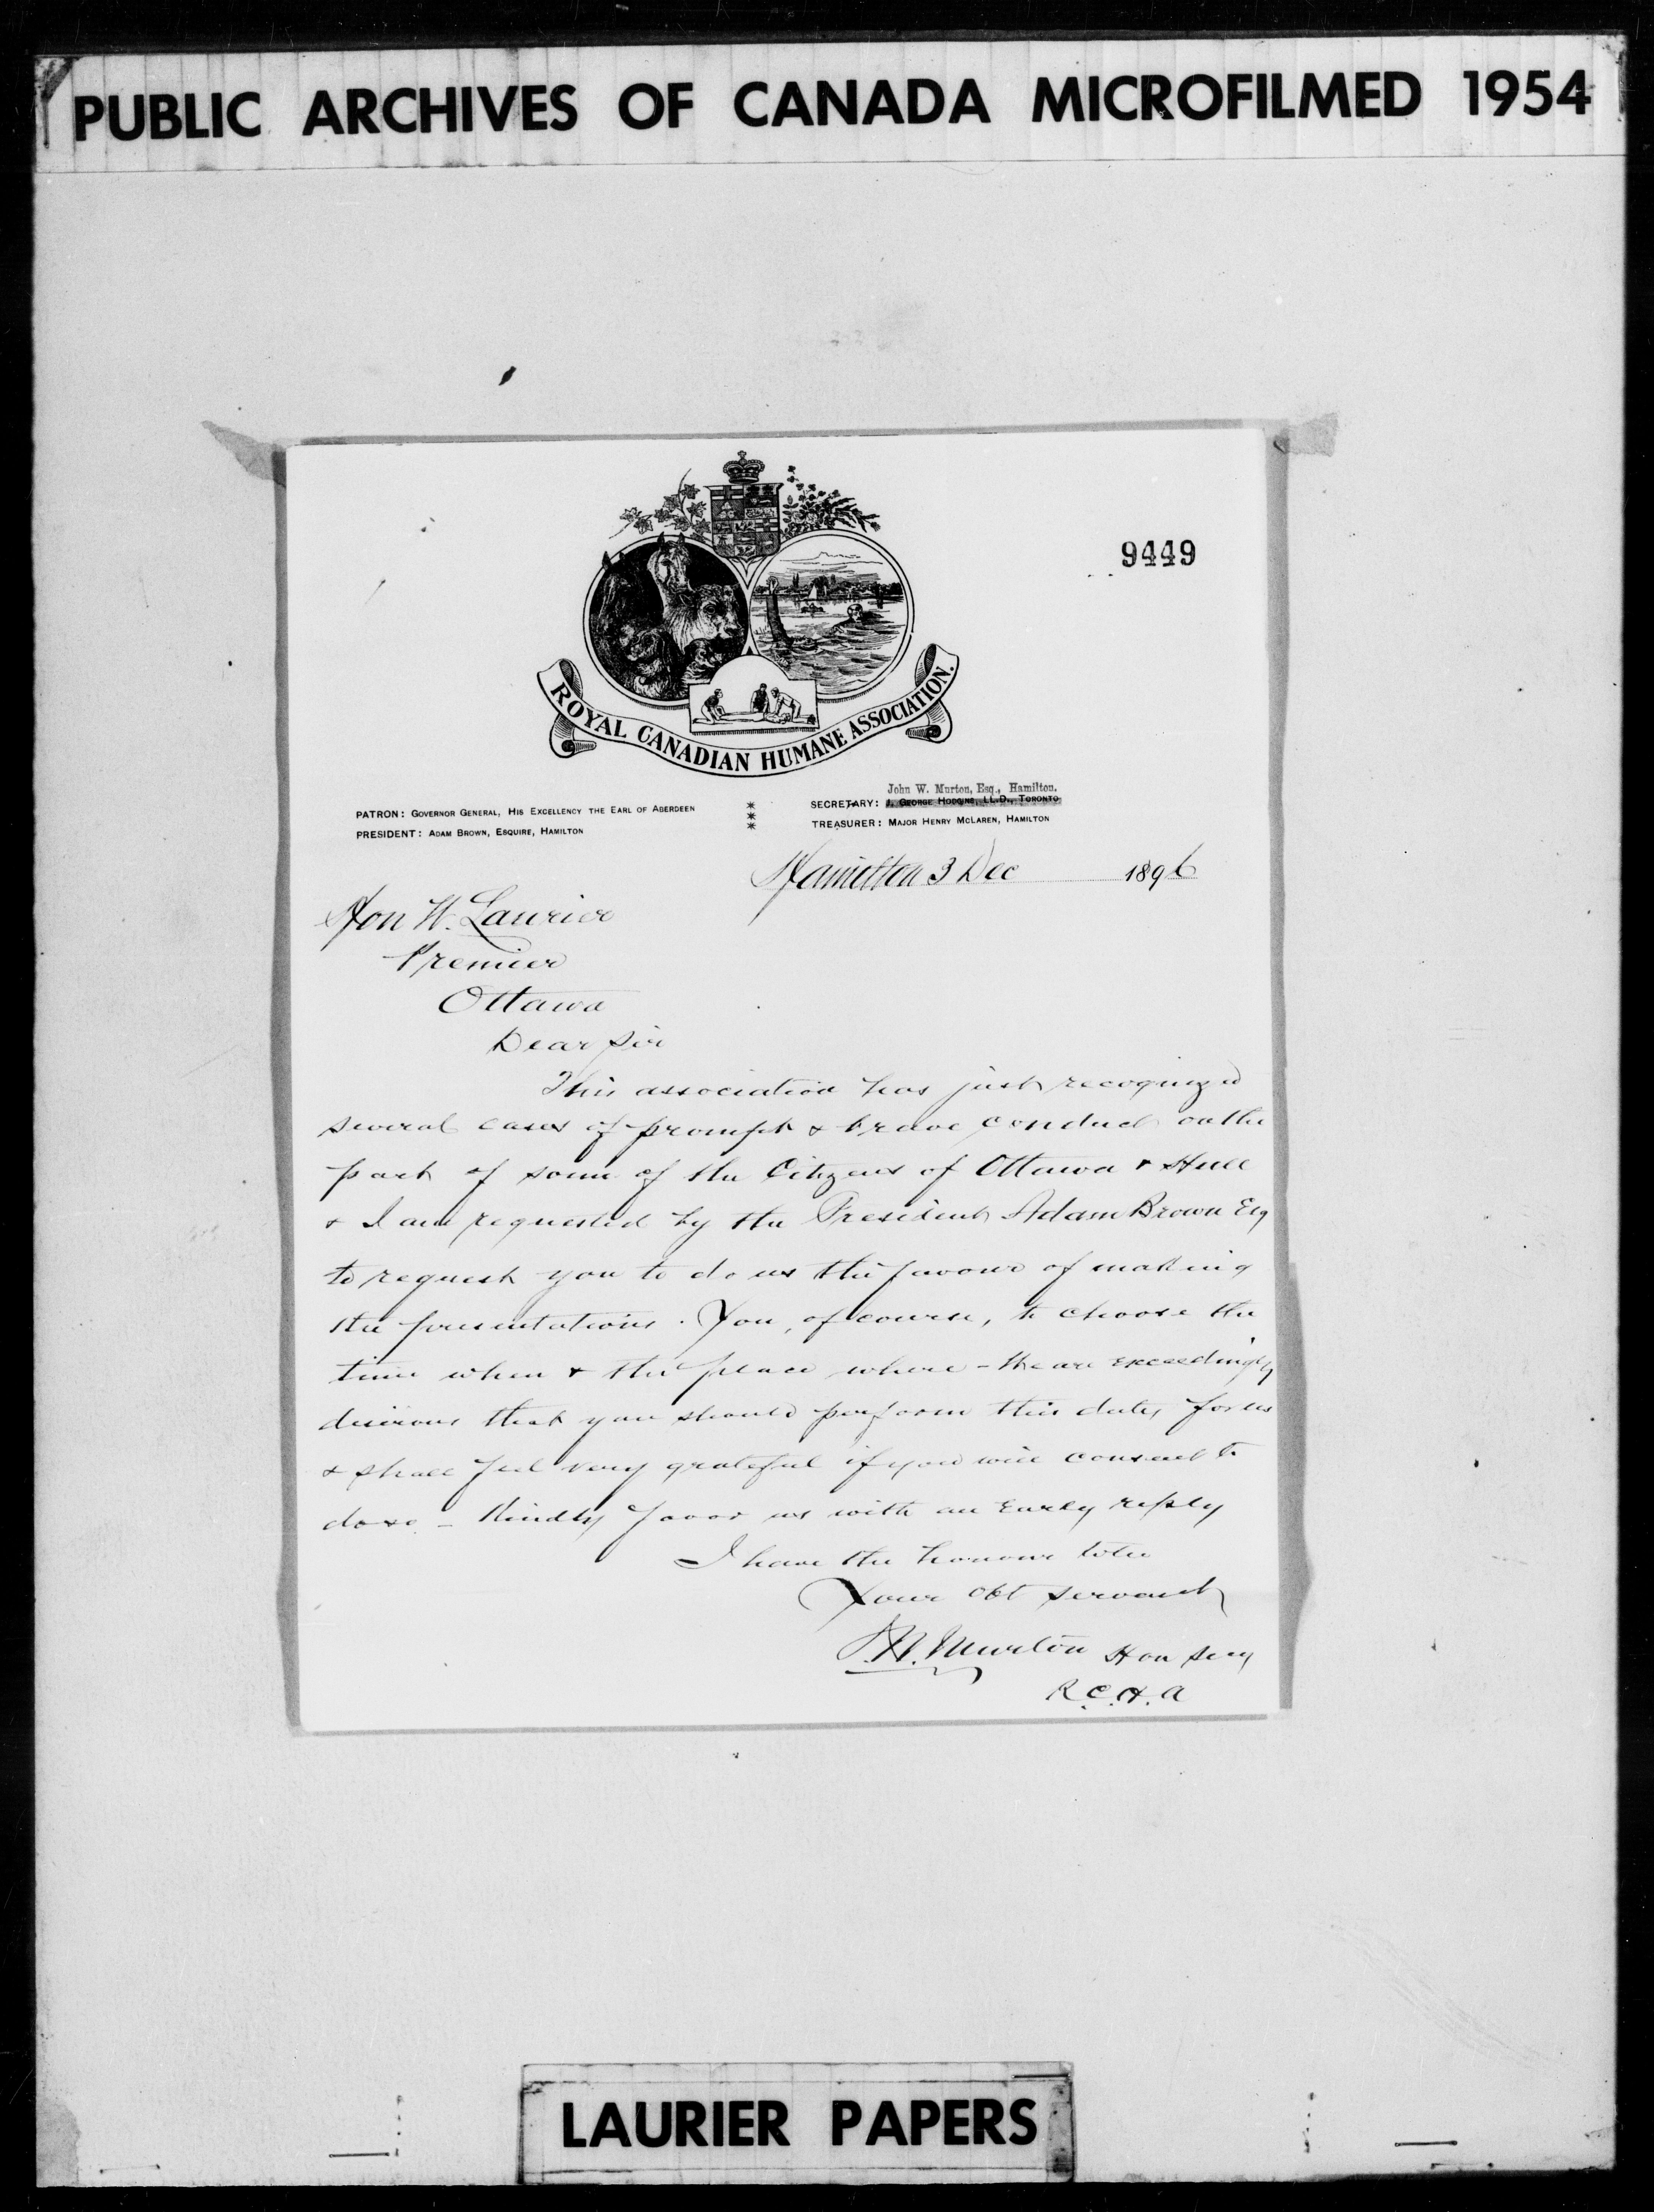 PUBLIC ARCHIVES OF CANADA MICROFILMED 1954
9449
ROYAL CANADIAN HUMANE ASSOCIATION.
PATRON: GOVERNOR GENERAL, HIS EXCELLENCY THE EARL OF ABERDEEN
PRESIDENT: ADAM BROWN, ESQUIRE, HAMILTON
John W. Murton, Esq., Hamilton.
SECRETARY: J. GEORGE HODGINS, LL.D., TORONTO
TREASURER: MAJOR HENRY MCLAREN, HAMILTON
Hamilton 3 Dec 1896
Hon W. Laurier
Premier
Ottawa
Dear Sir
This association has just recognized
several cases of prompt & brave conduct on the
part of some of the Citizens of Ottawa & Hull
& I am requested by the President Adam Brown Esq
to request you to do us the favour of making
the presentations. You, of course, to choose the
time when & the place where - We are exceedingly
desirous that you should perform this duty for us
& shall feel very grateful if you will consent to
do so - Kindly favor us with an early reply
I have the honour to be
Your Obt Servant
J.W. Murton Hon Secy
R.C.H.A
LAURIER PAPERS